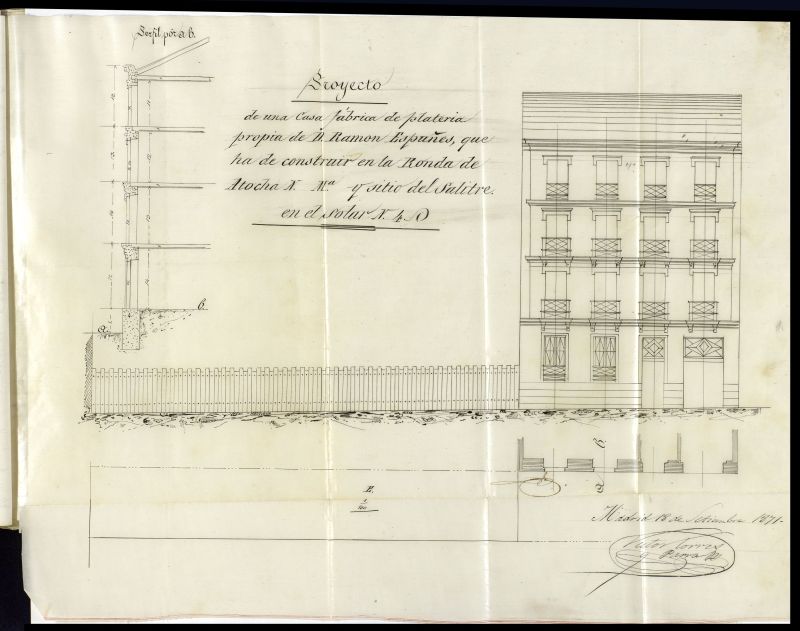 Perfil por a.b.
Proyecto
de una Casa fábrica de plateria
propia de D. Ramon Espuñes, que
ha de construir en la Ronda de
Atocha N. Mª y sitio del Salitre.
en el Solar N. 4. D
b.
a
E.
1/100
b.
a
Madrid 18 de Setiembre 1871.
Torres